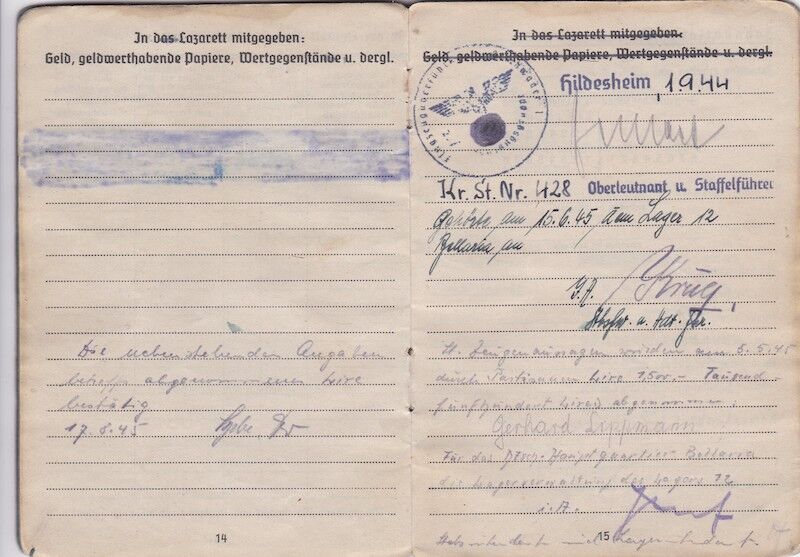 In das Lazarett mitgegeben:
Geld, geldwerthabende Papiere, Wertgegenstände u. dergl.
Die nebenstehenden Angaben
betreffs abgenommenen Lire
bestätig
17.8.45
14
In das Lazarett mitgegeben:
Geld, geldwerthabende Papiere, Wertgegenstände u. dergl.
Hildesheim 1944
Kr. St. Nr. 428 Oberleutnant u. Staffelführer
am 15.6.45 dem Lager 12
Bellaria an
I.A. Krug
u.
lt. Zeugenaussagen wurden am 5.5.45
durch Partisanen Lire 1500,- Tausend
fünfhundert Lire abgenommen.
Gerhard Lippmann
Für das Dtsch. Hauptquartier Bellaria
der Lagerverwaltung des Lagers 12
i.A.
15